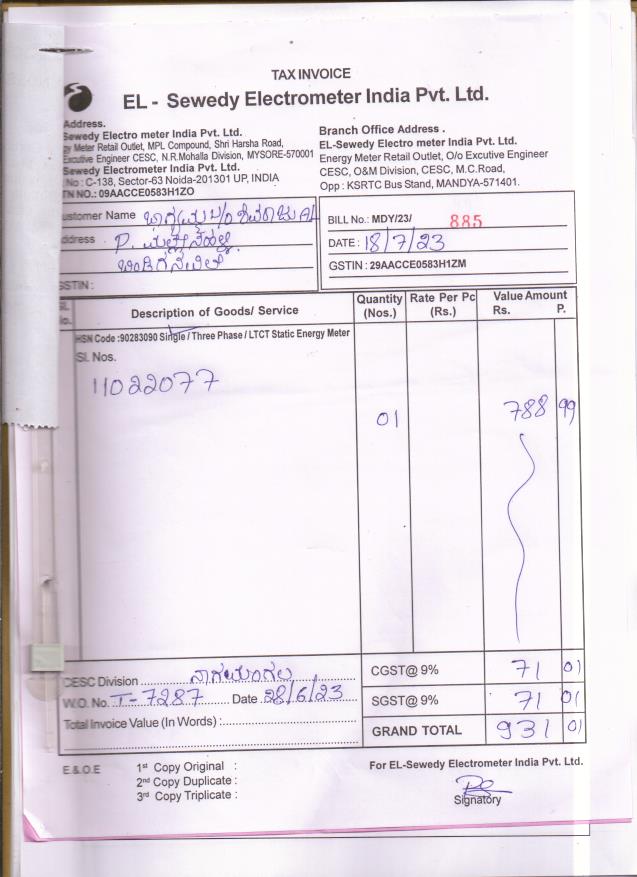 TAX INVOICE
EL - Sewedy Electrometer India Pvt. Ltd.
Address.
Sewedy Electro meter India Pvt. Ltd.
gy Meter Retail Outlet, MPL Compound, Shri Harsha Road,
Excutive Engineer CESC, N.R.Mohalla Division, MYSORE-570001
Sewedy Electrometer India Pvt. Ltd.
No : C-138, Sector-63 Noida-201301 UP, INDIA
TN NO.: 09AACCE0583H1ZO
Branch Office Address .
EL-Sewedy Electro meter India Pvt. Ltd.
Energy Meter Retail Outlet, O/o Excutive Engineer
CESC, O&M Division, CESC, M.C.Road,
Opp : KSRTC Bus Stand, MANDYA-571401.
ustomer Name
ddress P.
GSTIN :
BILL No.: MDY/23/ 885
DATE : 18/7/23
GSTIN : 29AACCE0583H1ZM
SL. No. Description of Goods/ Service Quantity (Nos.) Rate Per Pc (Rs.) Value Amount Rs. P.
HSN Code :90283090 Single / Three Phase / LTCT Static Energy Meter
Sl. Nos.
11022077
01 788 99
CESC Division ನಾಗಮಂಗಲ
W.O. No. T-7287 Date 28/6/23
Total Invoice Value (In Words) :
CGST@ 9% 71 01
SGST@ 9% 71 01
GRAND TOTAL 931 01
E & O E
1st Copy Original :
2nd Copy Duplicate :
3rd Copy Triplicate :
For EL-Sewedy Electrometer India Pvt. Ltd.
Signatory